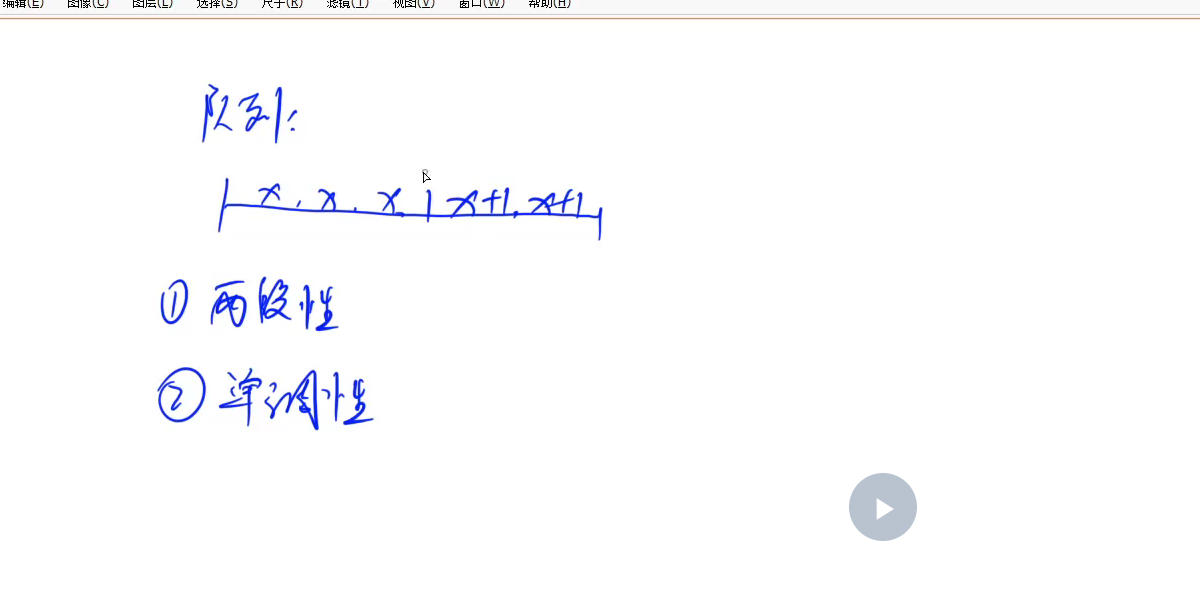 编辑(E) 图像(C) 图层(L) 选择(S) 尺寸(R) 滤镜(T) 视图(V) 窗口(W) 帮助(H)
队列:
x, x, x | x+1, x+1
① 两段性
② 单调性